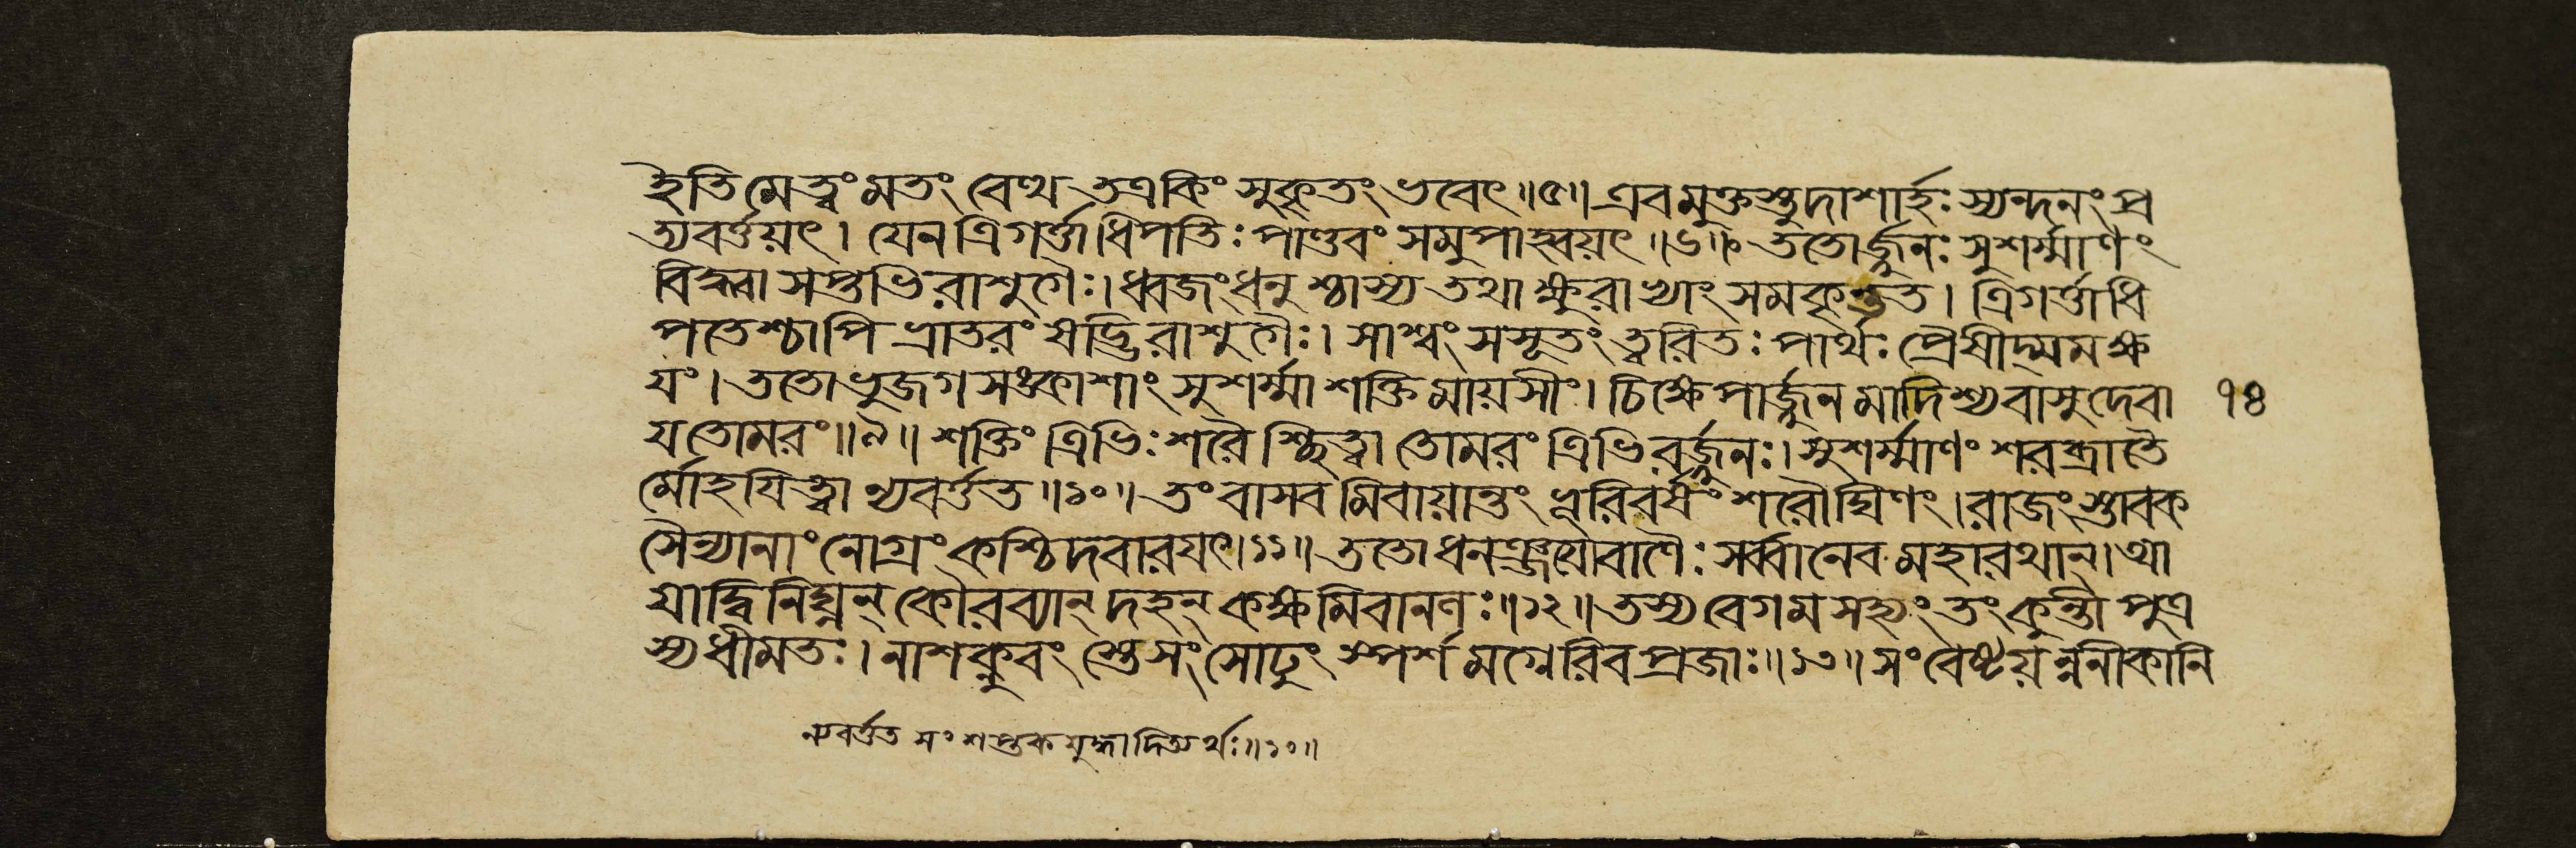 হৈতি মে ত্বং মতং বেত্থ তত্র কিং সুকৃতং ভবেৎ॥৫॥ এবমুক্তস্তু দাশার্হঃ স্যন্দনং প্র
ত্যবর্ত্তয়ৎ। যেন ত্রিগর্ত্তাধিপতিঃ পাণ্ডবং সমুপাহ্বয়ৎ॥৬॥ ততোর্জ্জুনঃ সুশর্ম্মাণং
বিদ্ধ্বা সপ্তভিরাশুগৈঃ। ধ্বজং ধনুশ্চাস্য তথা ক্ষুরাভ্যাং সমকৃন্তত। ত্রিগর্ত্তাধি
পতেশ্চাপি ভ্রাতরং ষড্ভিরাশুগৈঃ। সাশ্বং সসূতং ত্বরিতঃ পার্থঃ প্রৈষীদ্যমক্ষ
যং। ততো ভুজগসঙ্কাশাং সুশর্ম্মা শক্তিমায়সীং। চিক্ষেপার্জ্জুনমাদিশ্য বাসুদেবা ১৪
য তোমরং॥৯॥ শক্তিং ত্রিভিঃ শরৈশ্ছিত্ত্বা তোমরং ত্রিভিরর্জ্জুনঃ। সুশর্ম্মাণং শরব্রাতৈ
র্মোহযিত্বা ন্যবর্ত্তত॥১০॥ তং বাসবমিবায়ান্তং ভূরিবর্ষং শরৌঘিণং। রাজংস্তাবক
সৈন্যানাং নোগ্রং কশ্চিদবারযৎ।১১॥ ততো ধনঞ্জয়ো বাণৈঃ সর্ব্বানেব মহারথান্। আ
যাদ্বিনিঘ্নন্ কৌরব্যান্ দহন্ কক্ষমিবানলঃ॥১২॥ তস্য বেগমসহ্যং তং কুন্তীপুত্র
স্য ধীমতঃ। নাশক্নুবংস্তে সংসোঢুং স্পর্শমগ্নেরিব প্রজাঃ॥১৩॥ সংবেষ্টয়ন্ননীকানি
ন্যবর্ত্তত সংশপ্তকযুদ্ধাদিত্যর্থঃ॥১০॥